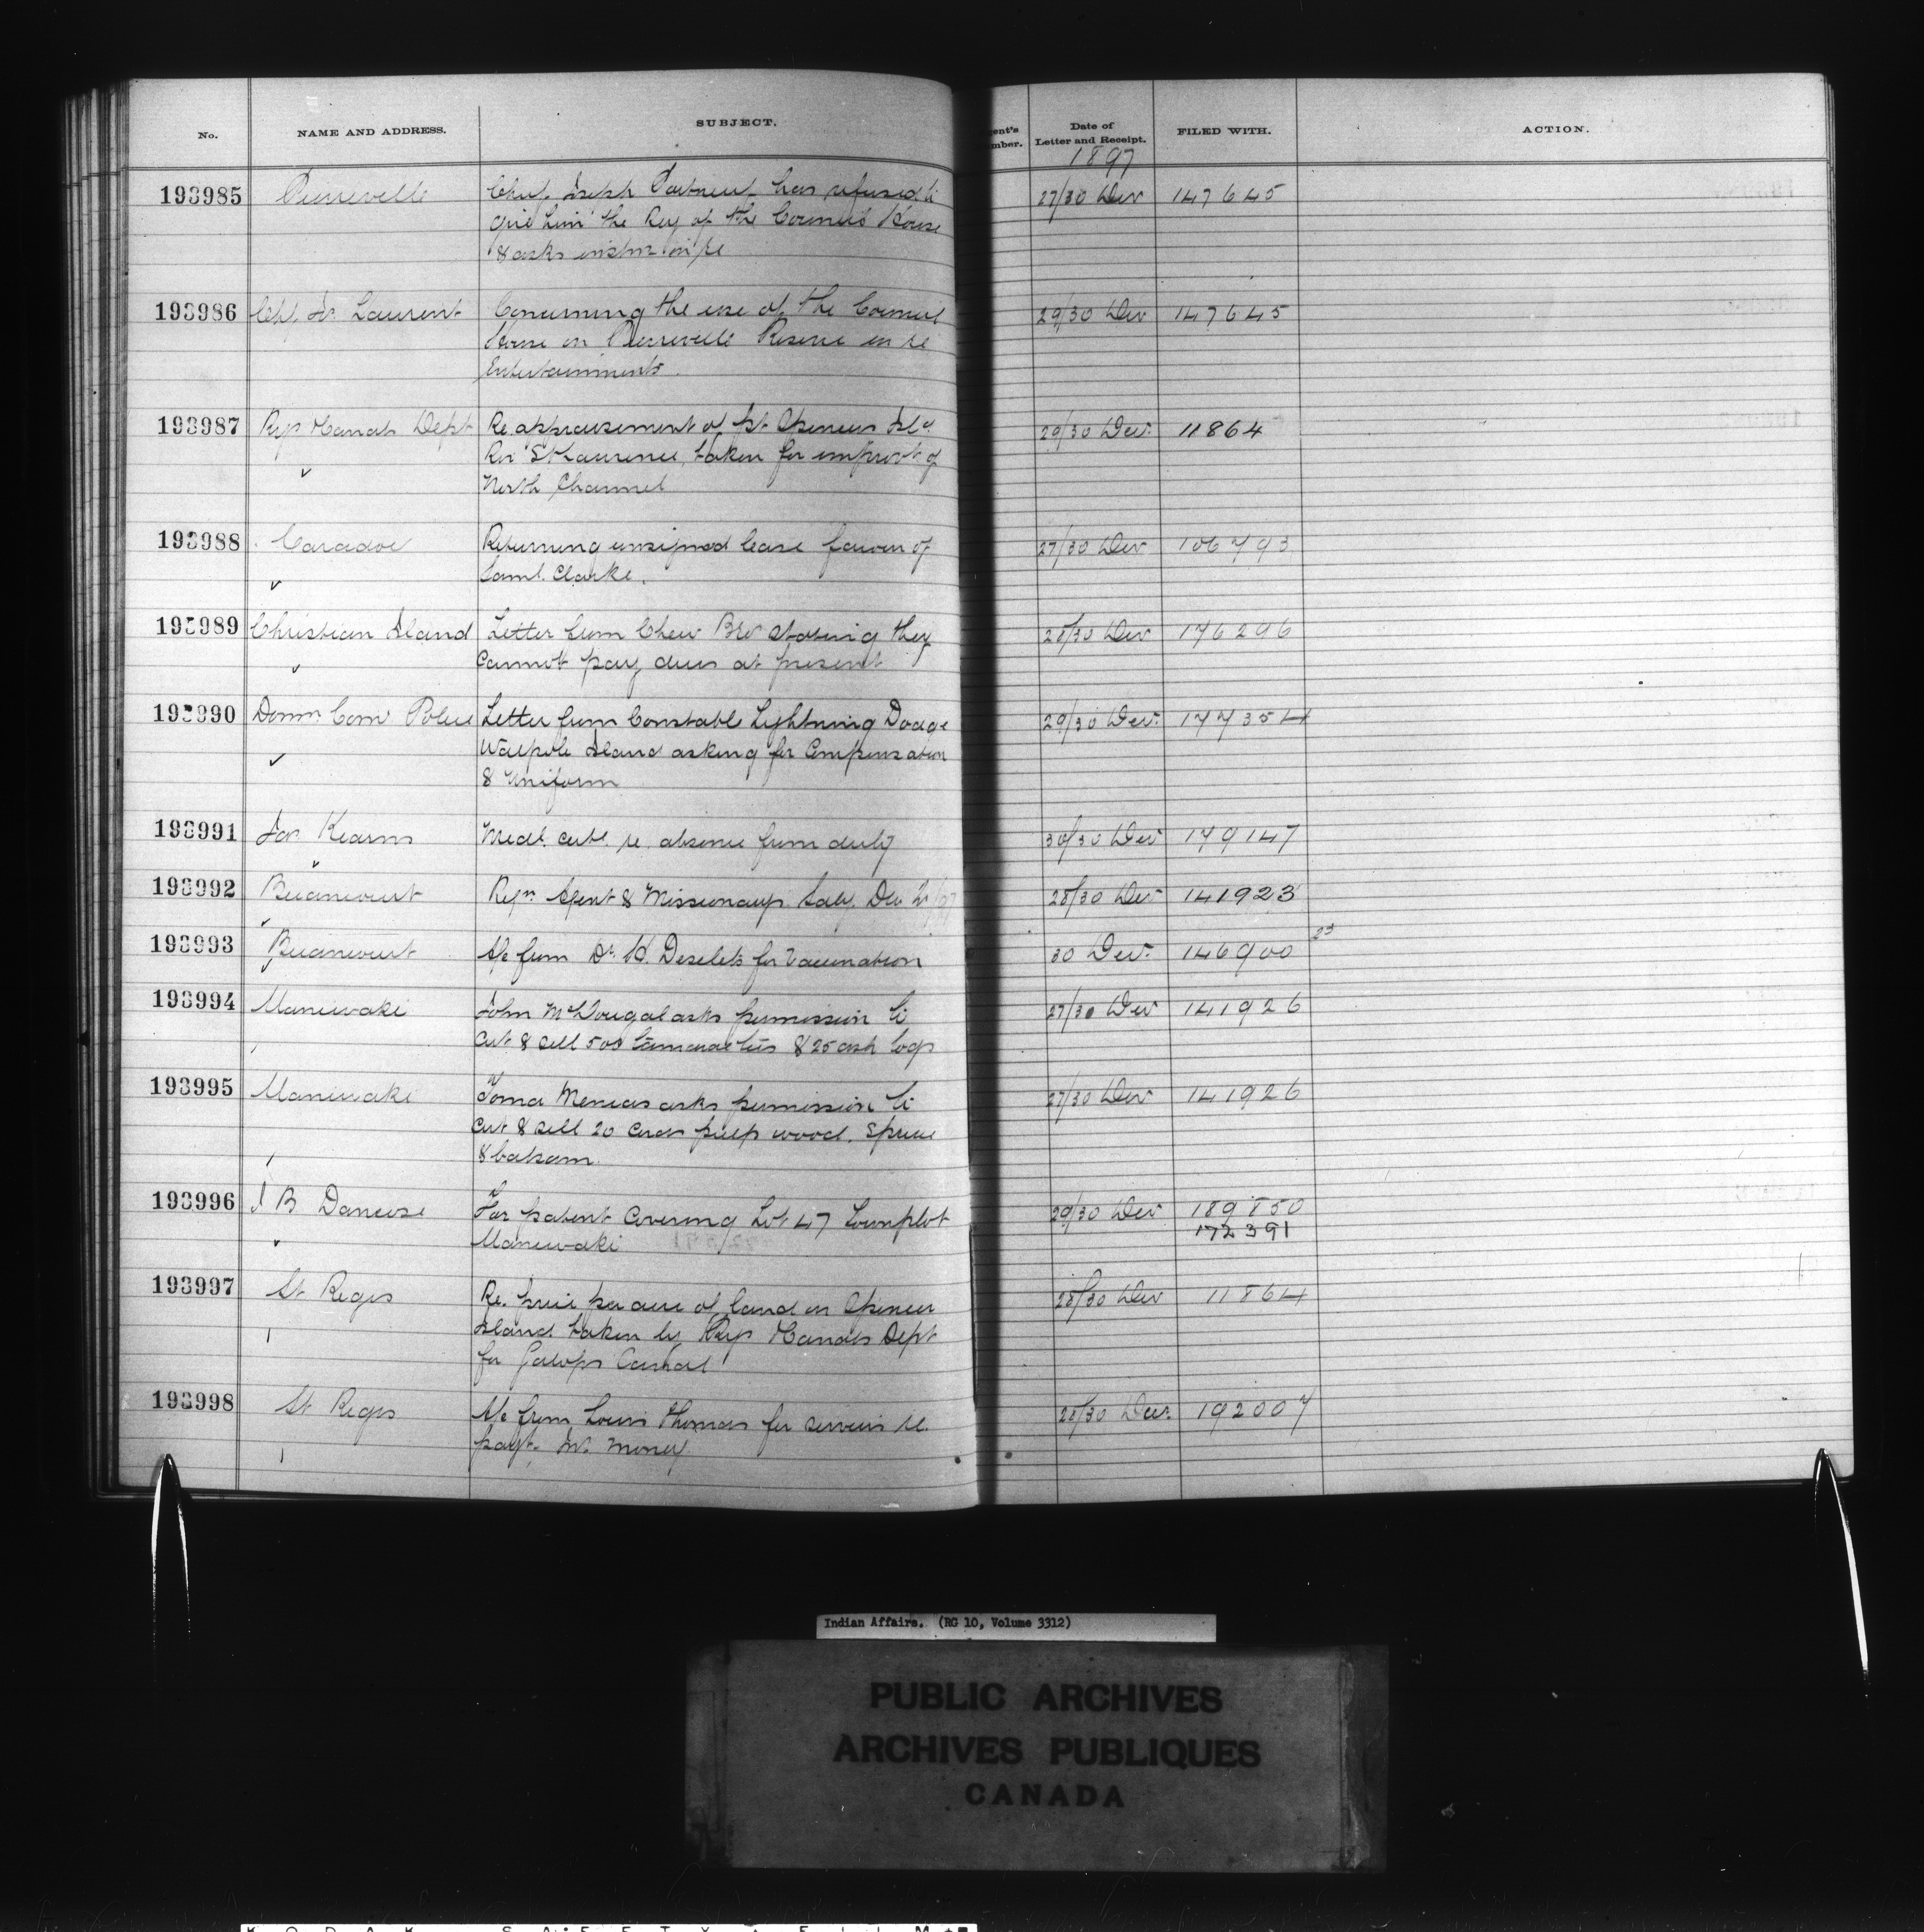 No.
NAME AND ADDRESS.
SUBJECT.
Date of
Letter and Receipt.
FILED WITH.
ACTION.
1897
193985 Pierreville Chief Joseph has refused to 27/30 Dec 147645
give him the Key of the Council House
& asks instns in re
193986 Laurent Concerning the use of the Council 29/30 Dec 147645
House on Pierreville Reserve in re
Entertainments.
193987 Rys & Canals Dept Re appraisement of pt Spencer Isld 29/30 Dec. 11864
Riv St Laurence, taken for improvt of
North Channel
193988 Caradoc Returning unsigned lease favour of 27/30 Dec 106793
Saml. Clarke.
193989 Christian Island Letter from Chew Bros stating they 28/30 Dec 176296
cannot pay dues at present
193990 Domn Comr Police Letter from Constable Lightning Dodge 29/30 Dec. 177354
Walpole Island asking for Compensation
& Uniform
193991 Jas Kearns Medl. certt. re. absence from duty 30/30 Dec 179147
193992 Becancourt Reqn Agent & Missionarys Saly. Dec 28/30 Dec 141923
193993 Becancourt A/c from Dr. Desilets for Vaccination 30 Dec. 146900 23
193994 Maniwaki John McDougal asks permission to 27/30 Dec 141926
cut & sell 500 tamarac ties & 25 ash logs
193995 Maniwaki Toma asks permission to 27/30 Dec 141926
cut & sell 20 cords pulp wood. Spruce
& balsam.
193996 J B Dancose For patent Covering Lot 47 Townplot 29/30 Dec 189850
Maniwaki 172391
193997 St Regis Re. price per acre of land on Spencer 28/30 Dec 11864
Island taken by Rys & Canals Dept
for Galops Canal
193998 St Regis A/c from Louis Thomas for services re. 28/30 Dec. 192007
payt. Int. Money.
Indian Affairs. (RG 10, Volume 3312)
PUBLIC ARCHIVES
ARCHIVES PUBLIQUES
CANADA